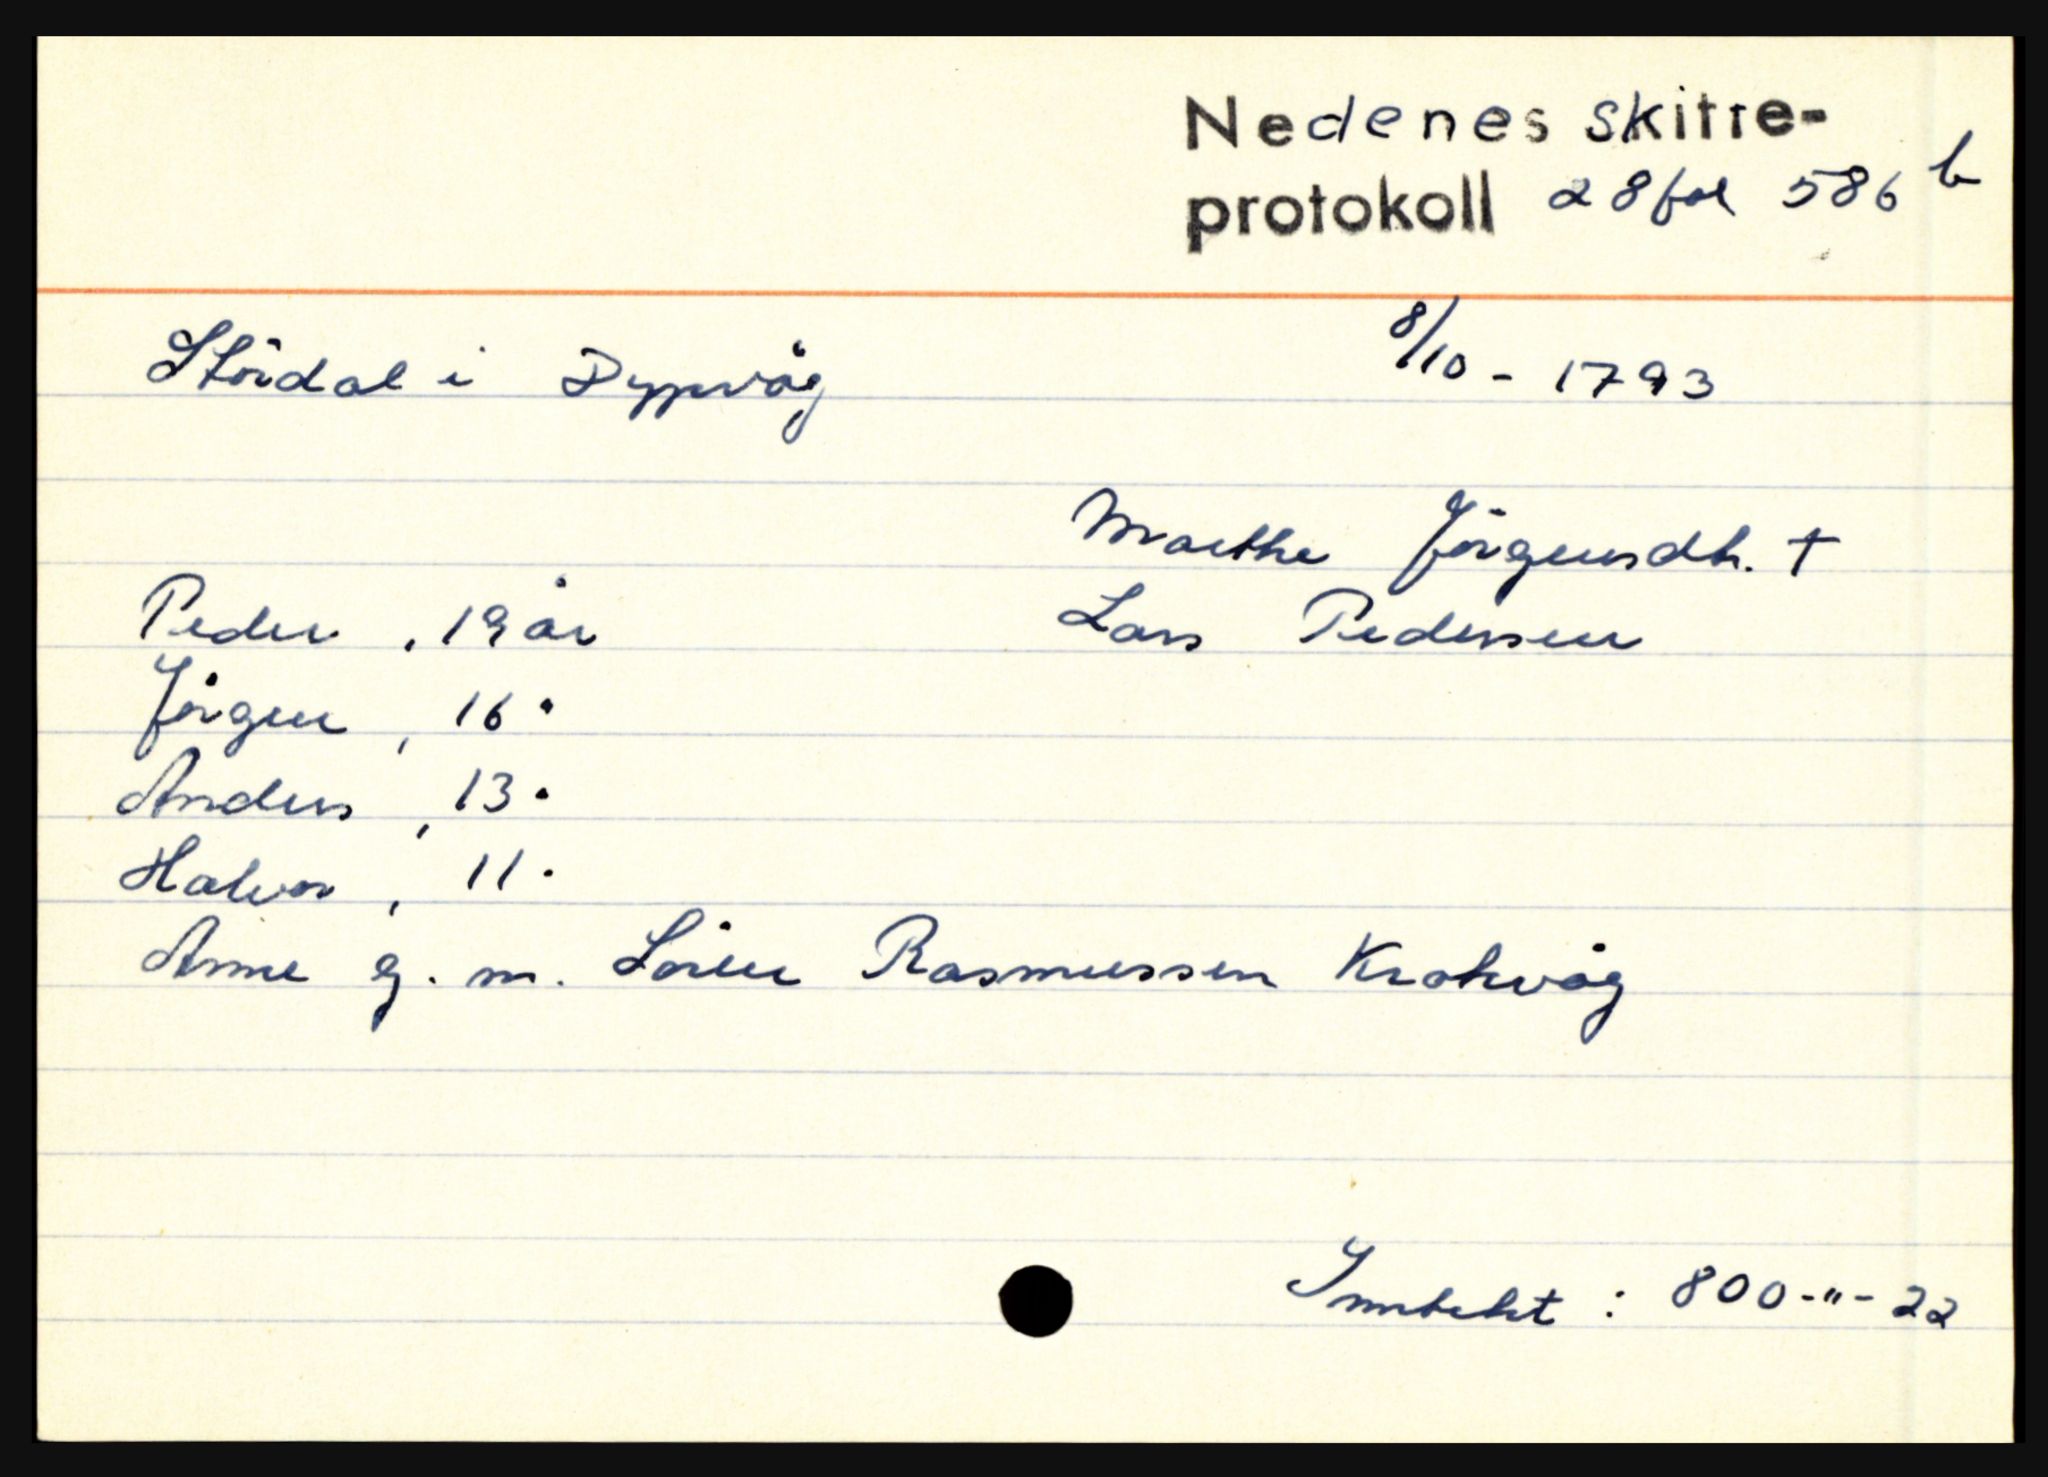 Nedenes skifte-
protokoll 28 fol 586 b
Stördal i Dypvåg 8/10 - 1793
Marthe Jörgensdtr. †
Peder , 19 år Lars Pedersen
Jörgen , 16 "
Anders , 13 "
Halvor , 11 "
Anne g. m. Sören Rasmussen Krokvåg
Inntekt : 800-"-22